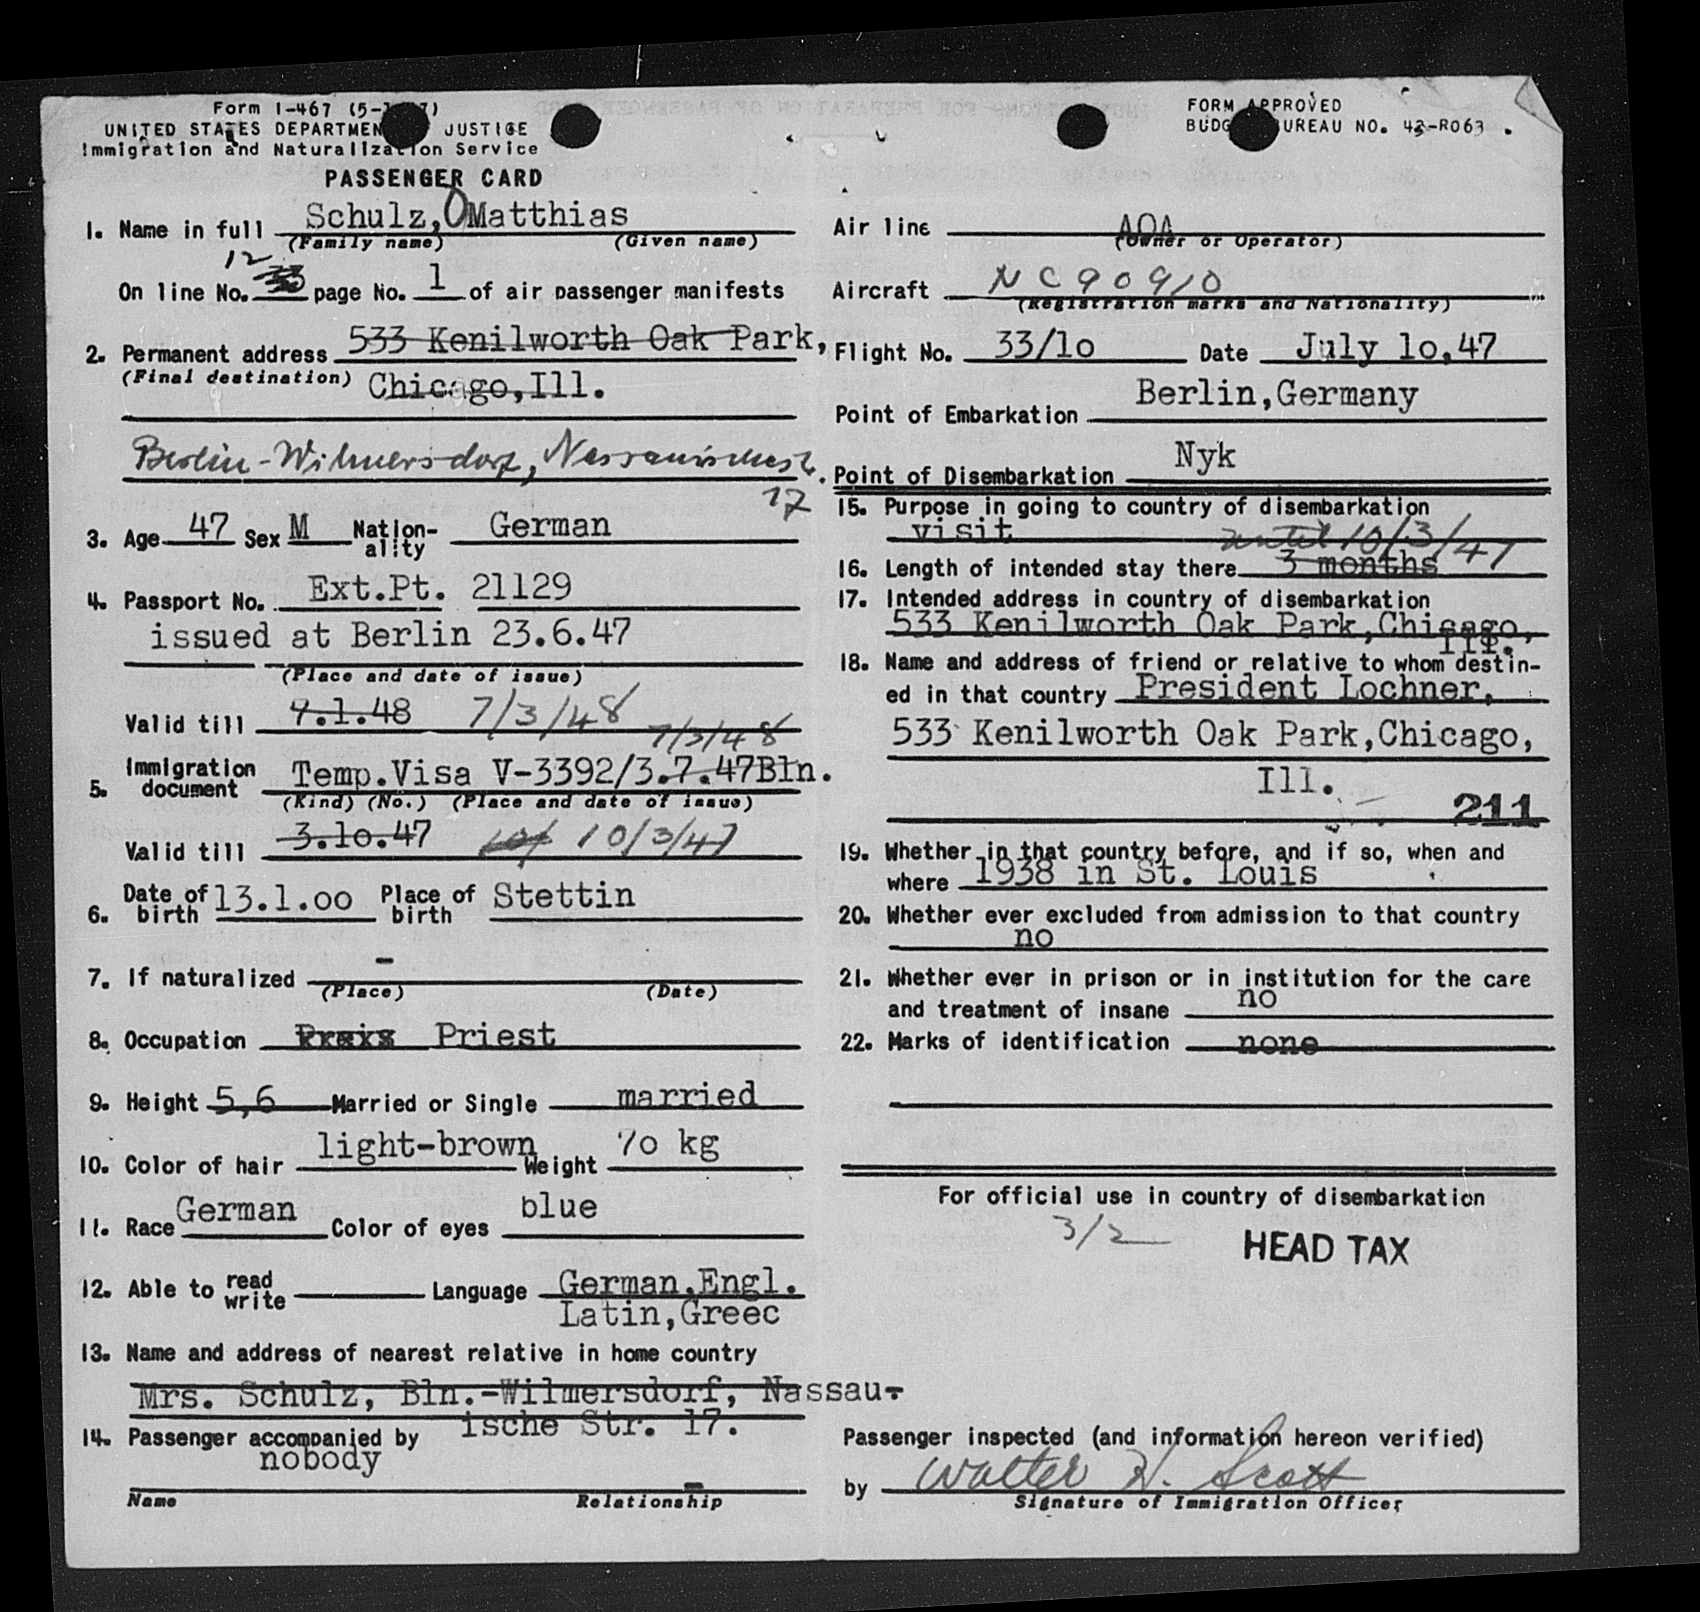 Form I-467 (5-
UNITED STATES DEPARTMENT JUSTICE
Immigration and Naturalization Service
PASSENGER CARD
1. Name in full Schulz, O Matthias
(Family name) (Given name)
12
On line No. 33 page No. 1 of air passenger manifests
2. Permanent address 533 Kenilworth Oak Park,
(Final destination) Chicago,Ill.
Berlin-Wilmersdorf, Nassauischestr.
17
3. Age 47 Sex M Nation-ality German
4. Passport No. Ext.Pt. 21129
issued at Berlin 23.6.47
(Place and date of issue)
Valid till 7.1.48 7/3/48
7/3/48
5. Immigration document Temp.Visa V-3392/3.7.47Bln.
(Kind) (No.) (Place and date of issue)
Valid till 3.10.47 10/ 10/3/47
6. Date of birth 13.1.00 Place of birth Stettin
7. If naturalized -
(Place) (Date)
8. Occupation Priest
9. Height 5,6 Married or Single married
10. Color of hair light-brown Weight 70 kg
11. Race German Color of eyes blue
12. Able to read write Language German,Engl.
Latin,Greec
13. Name and address of nearest relative in home country
Mrs. Schulz, Bln.-Wilmersdorf, Nassau-
ische Str. 17.
14. Passenger accompanied by
nobody
-
Name Relationship
FORM APPROVED
BUDG BUREAU NO. 43-R063.
Air line AOA
(Owner or Operator)
Aircraft NC90910
(Registration marks and Nationality)
Flight No. 33/10 Date July 10,47
Point of Embarkation Berlin,Germany
Point of Disembarkation Nyk
15. Purpose in going to country of disembarkation
visit until 10/3/47
16. Length of intended stay there 3 months
17. Intended address in country of disembarkation
533 Kenilworth Oak Park,Chicago,
Ill.
18. Name and address of friend or relative to whom destin-
ed in that country President Lochner,
533 Kenilworth Oak Park,Chicago,
Ill.
211
19. Whether in that country before, and if so, when and
where 1938 in St. Louis
20. Whether ever excluded from admission to that country
no
21. Whether ever in prison or in institution for the care
and treatment of insane no
22. Marks of identification none
For official use in country of disembarkation
3/2 HEAD TAX
Passenger inspected (and information hereon verified)
by Walter H. Scott
Signature of Immigration Officer